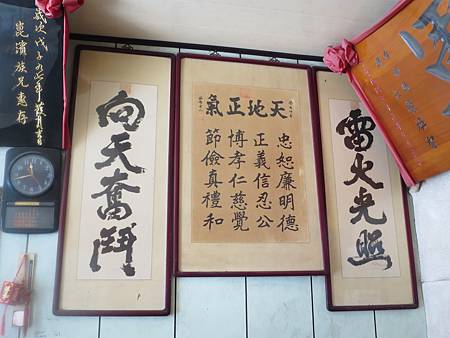 雷火光照
天地正氣
忠恕廉明德
正義信忍公
博孝仁慈覺
節儉真禮和
向天奮鬥
歲次戊子九七年
崑濱族兄惠存